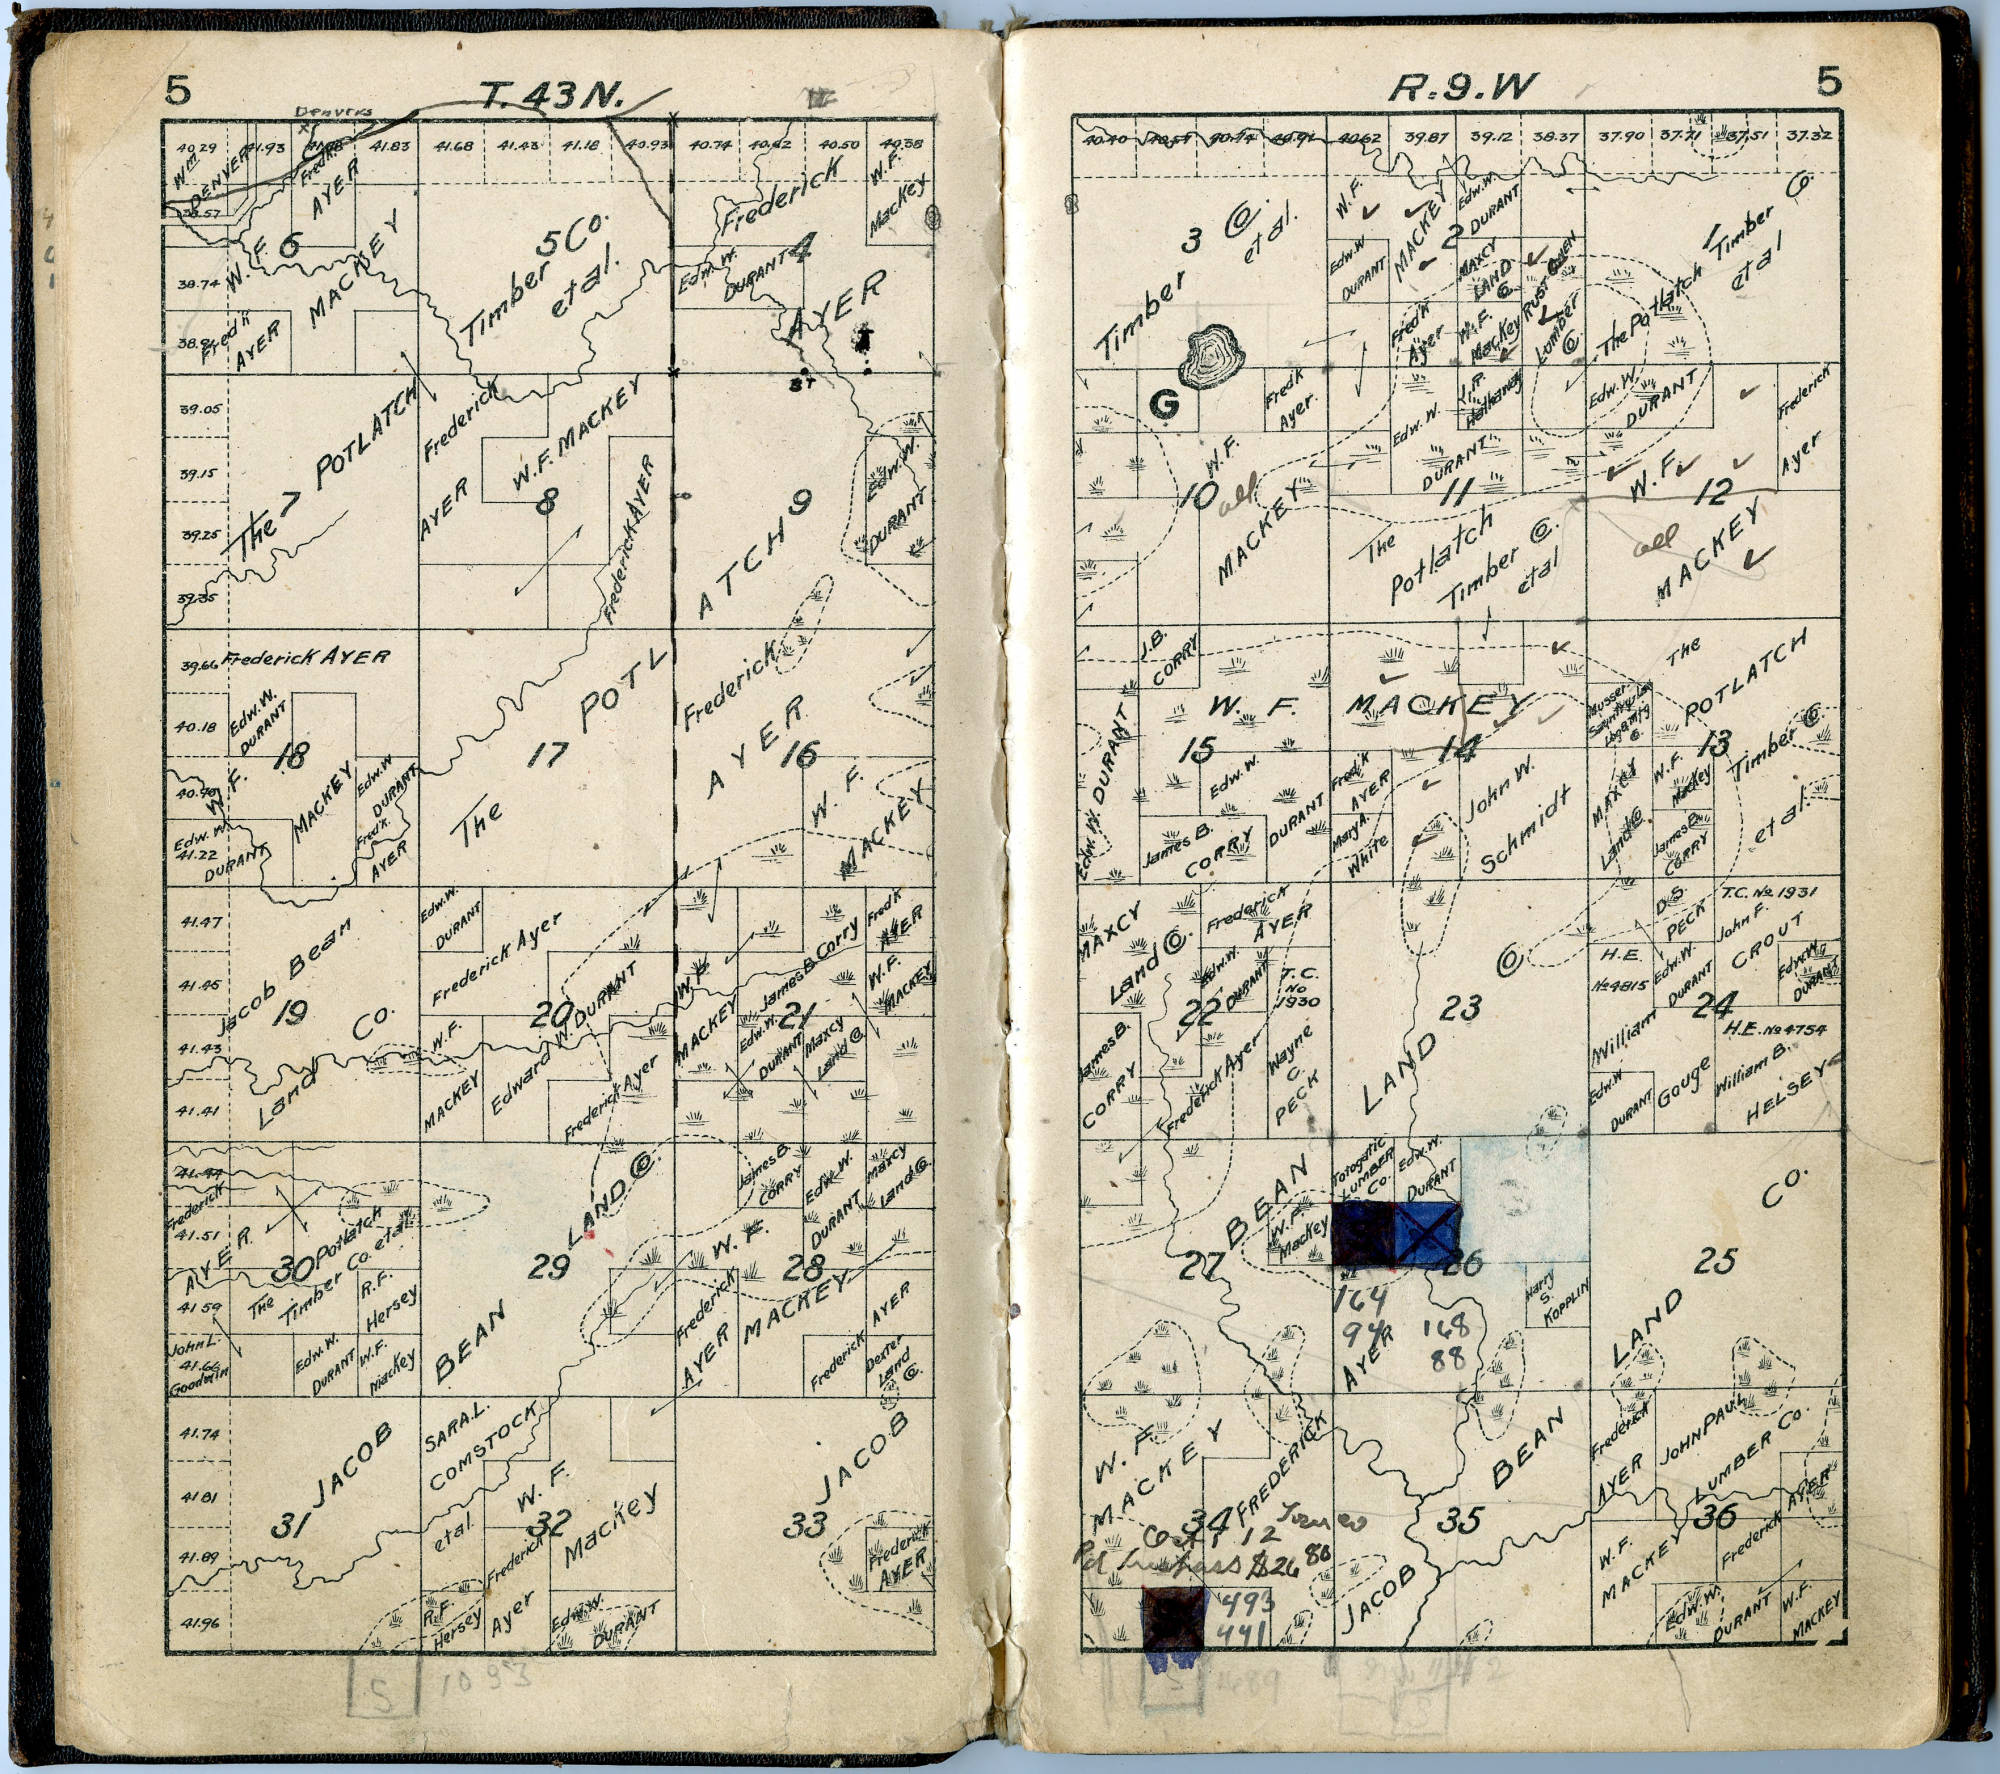 5
T. 43 N.
Denvers
40.29
41.93
41.83
41.68
41.43
41.18
40.93
40.74
40.62
40.50
40.38
Wm
DENVER
38.57
Fred'k.
AYER
6
W. F.
MACKEY
38.74
Fred'k
AYER
5
Timber Co.
et al.
Frederick
AYER
4
Edw. W.
DURANT
W. F.
Mackey
39.05
39.15
39.25
39.35
The
POTLATCH
7
Frederick
AYER
W. F. MACKEY
8
Frederick AYER
9
Edw. W.
DURANT
39.66
Frederick AYER
40.18
Edw. W.
DURANT
18
W. F.
MACKEY
Edw. W
DURANT
Edw. W.
41.22
DURANT
Fred'k.
AYER
17
The
POTL
ATCH
Frederick
AYER
16
W. F.
MACKEY
41.47
41.45
41.43
41.41
Jacob Bean
19
Land Co.
Edw. W.
DURANT
Frederick Ayer
20
W. F.
MACKEY
Edward W. DURANT
Frederick Ayer
W. F.
MACKEY
James B. Corry
21
Edw. W.
DURANT
Maxcy
Land Co.
Fred'k
AYER
W. F.
MACKEY
41.44
Frederick
AYER
41.51
30
The
Potlatch
Timber Co. et al.
41.59
R. F.
Hersey
John L.
41.66
Goodwin
Edw. W.
DURANT
W. F.
Mackey
29
BEAN
LAND Co.
James B.
CORRY
Edw. W.
DURANT
Maxcy
Land Co.
W. F.
MACKEY
28
Frederick
AYER
Frederick
AYER
Dexter
Land
Co.
41.74
41.81
41.89
41.96
31
JACOB
SARA L.
COMSTOCK
et al.
W. F.
Mackey
32
Frederick
Ayer
R. F.
Hersey
Edw. W.
DURANT
33
JACOB
Frederick
AYER
5
1093
R. 9. W
5
40.40
40.57
40.74
40.91
40.62
39.87
39.12
38.37
37.90
37.71
37.51
37.32
3
Timber Co.
et al.
W. F.
MACKEY
2
Edw. W
DURANT
Edw. W.
DURANT
MAXCY
LAND
Co.
Fred'k
Ayer
W. F.
Mackey
RUST OWEN
Lumber
Co.
The Potlatch Timber Co.
et al
G
Fred'k
Ayer.
10
W. F.
MACKEY
all
Edw. W.
DURANT
Hathaway
11
The
Potlatch
Timber Co.
et al
Edw. W.
DURANT
Frederick
Ayer
W. F.
12
MACKEY
all
J. B.
CORRY
Edw. W. DURANT
W. F. MACKEY
15
Edw. W.
DURANT
James B.
CORRY
14
Fred'k
AYER
Mary A.
White
John W.
Schmidt
Musser
MAXCY
Land Co.
W. F.
Mackey
James B.
CORRY
13
The
POTLATCH
Timber Co.
et al.
MAXCY
Land Co.
Frederick
AYER
Edw. W.
DURANT
22
T. C.
No
1930
Wayne
C.
PECK
James B.
CORRY
Frederick Ayer
23
LAND
Co
D. S.
PECK
T.C. No 1931
John F.
CROUT
H. E.
No 4815
William
Gouge
Edw. W.
DURANT
Edw. W
DURANT
24
H. E. No 4754
William B.
HELSEY
Edw. W
DURANT
27
BEAN
W. F.
Mackey
Totogatic
LUMBER
Co.
Edw. W.
DURANT
26
Harry
S.
KOPPLIN
164
94
168
88
AYER
25
LAND
Co.
W. F.
MACKEY
34
FREDERICK
Oct 1 12
Pd trespass $26 80
493
441
35
JACOB
BEAN
Frederick
AYER
JOHN PAUL
LUMBER Co.
36
AYER
W. F.
MACKEY
Frederick
Edw. W.
DURANT
W. F.
MACKEY